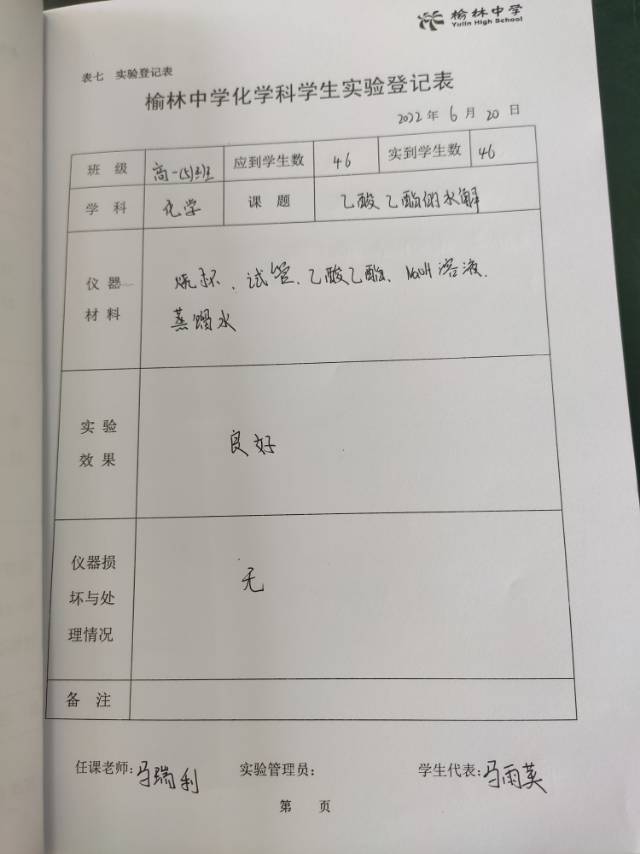 榆林中学
Yulin High School
表七 实验登记表
榆林中学化学科学生实验登记表
2022 年 6 月 20 日
班 级 高一(5)班 应到学生数 46 实到学生数 46
学 科 化学 课 题 乙酸乙酯的水解
仪 器
材 料
烧杯、试管、乙酸乙酯、NaOH溶液、
蒸馏水
实 验
效 果
良好
仪器损
坏与处
理情况
无
备 注
任课老师:马瑞利 实验管理员: 学生代表:马雨英
第 页